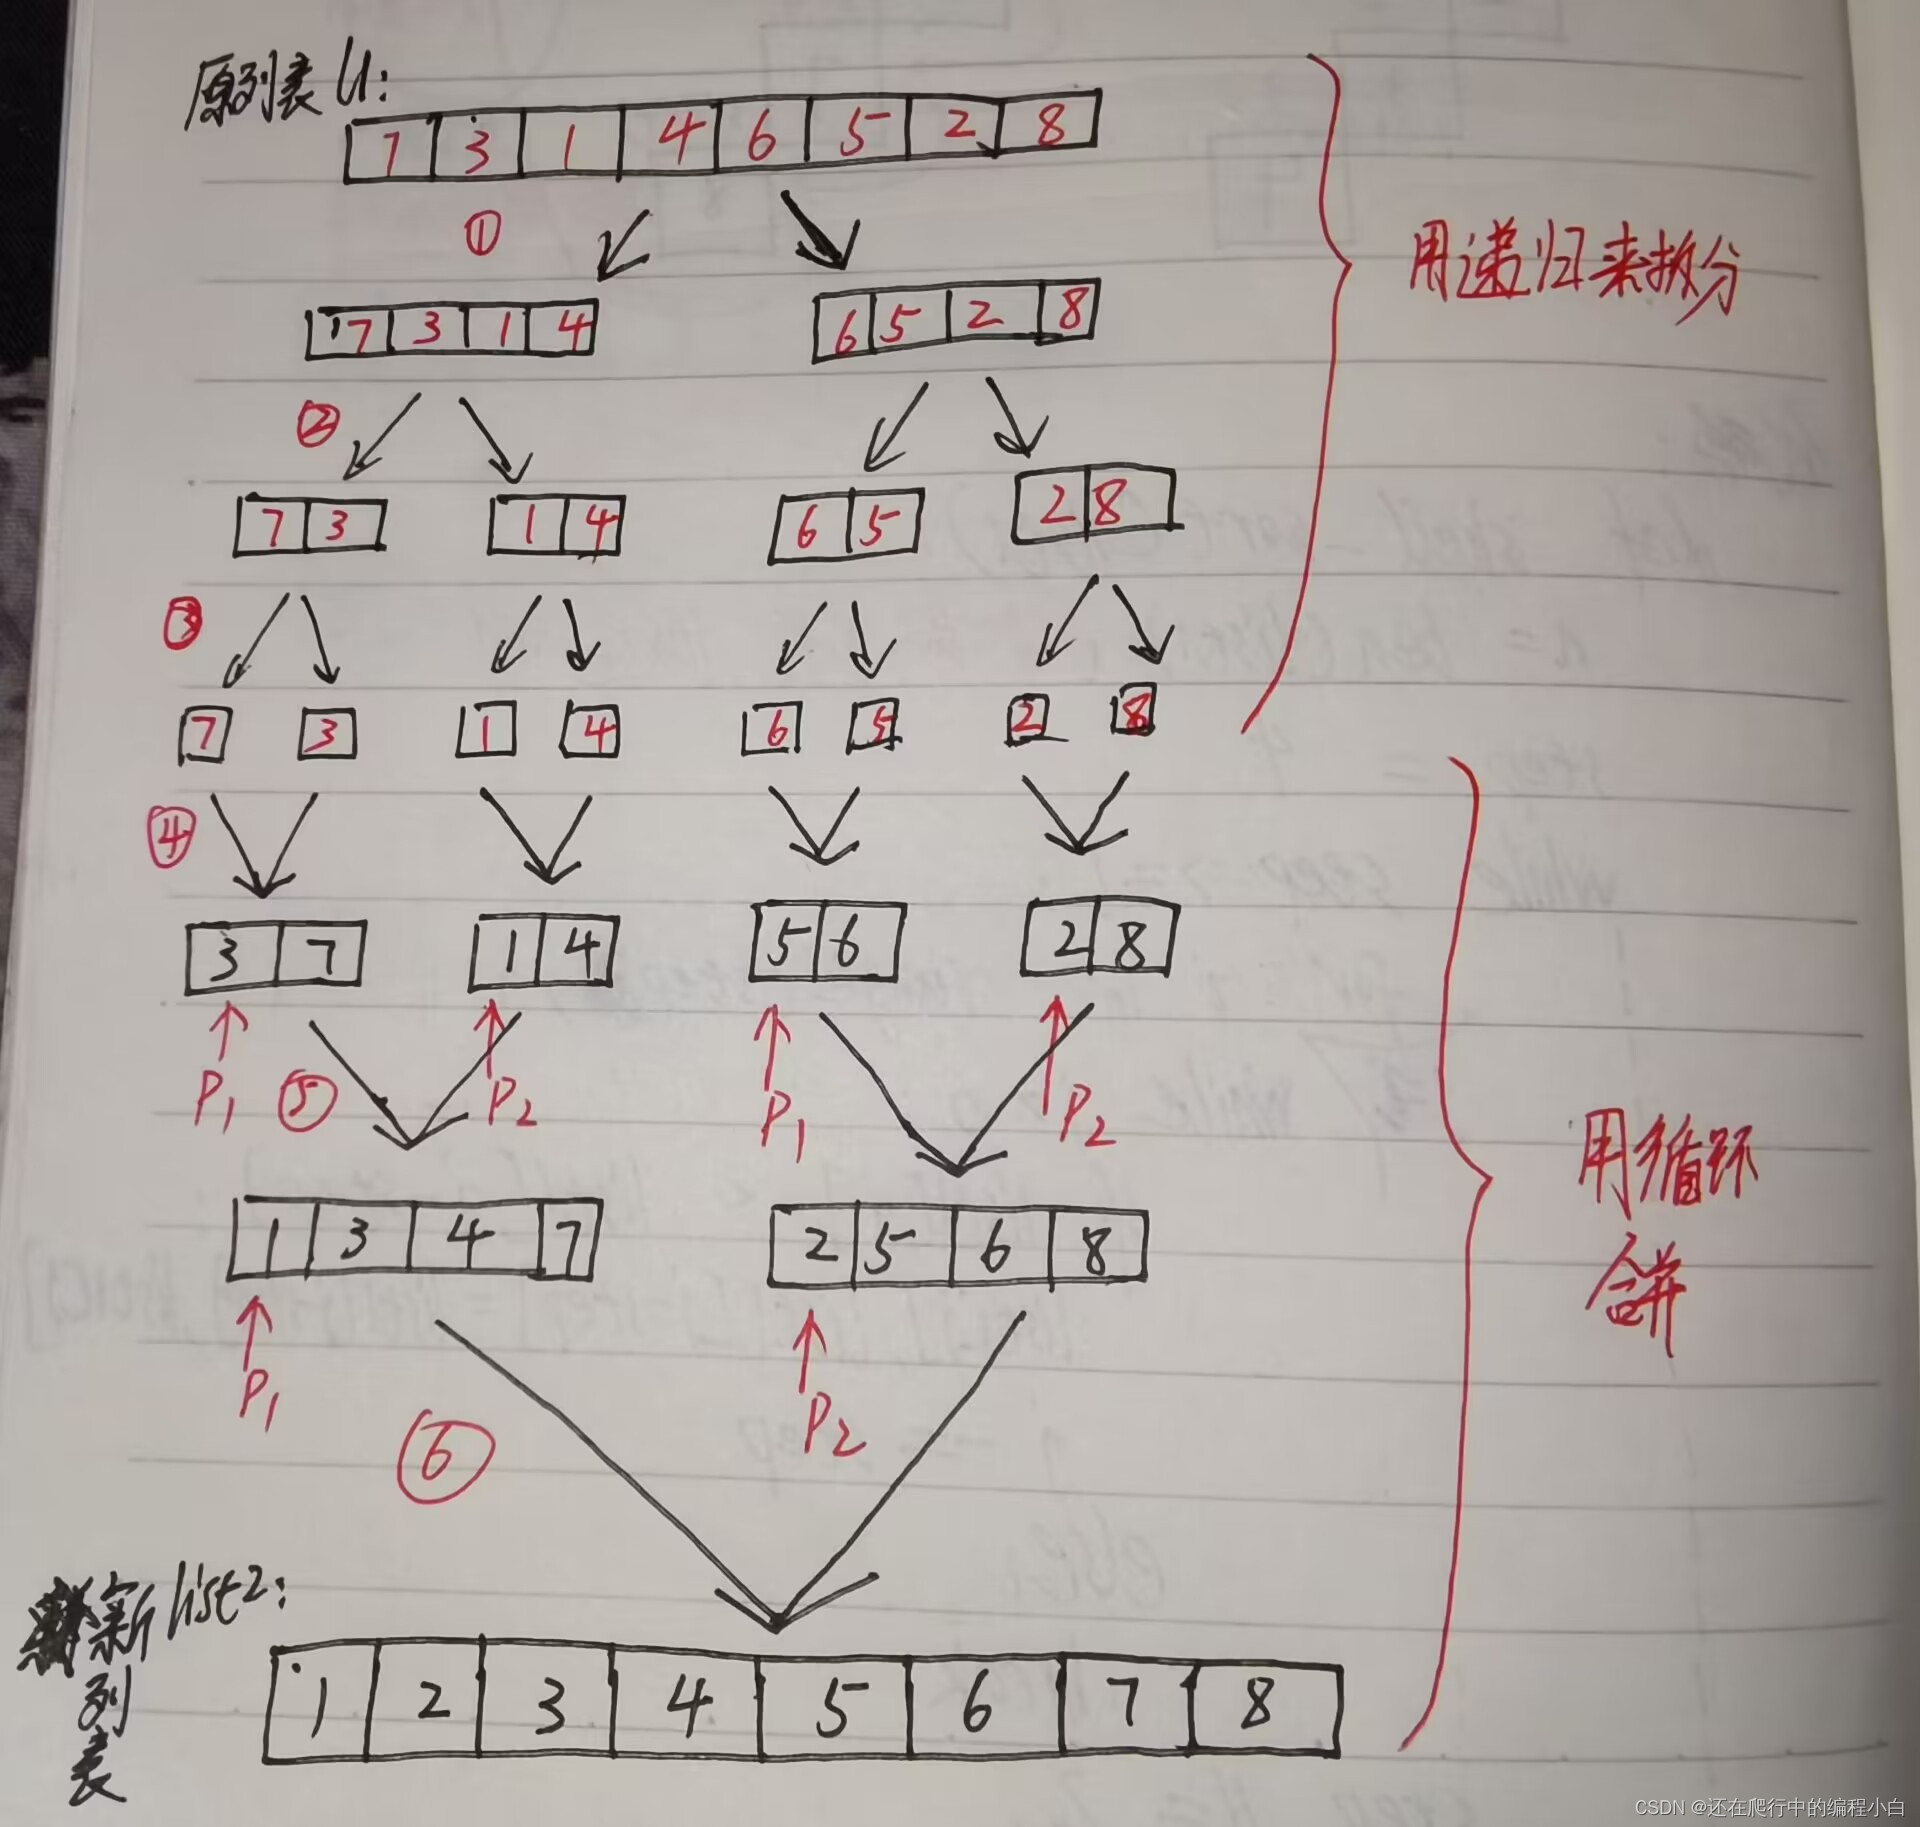 原列表 l1:
7 3 1 4 6 5 2 8
①
用递归来拆分
7 3 1 4 6 5 2 8
②
7 3 1 4 6 5 2 8
③
7 3 1 4 6 5 2 8
④
3 7 1 4 5 6 2 8
P1 ⑤ P2 P1 P2
用循环
合并
1 3 4 7 2 5 6 8
P1 P2
⑥
新列表 list2:
1 2 3 4 5 6 7 8
CSDN @还在爬行中的编程小白